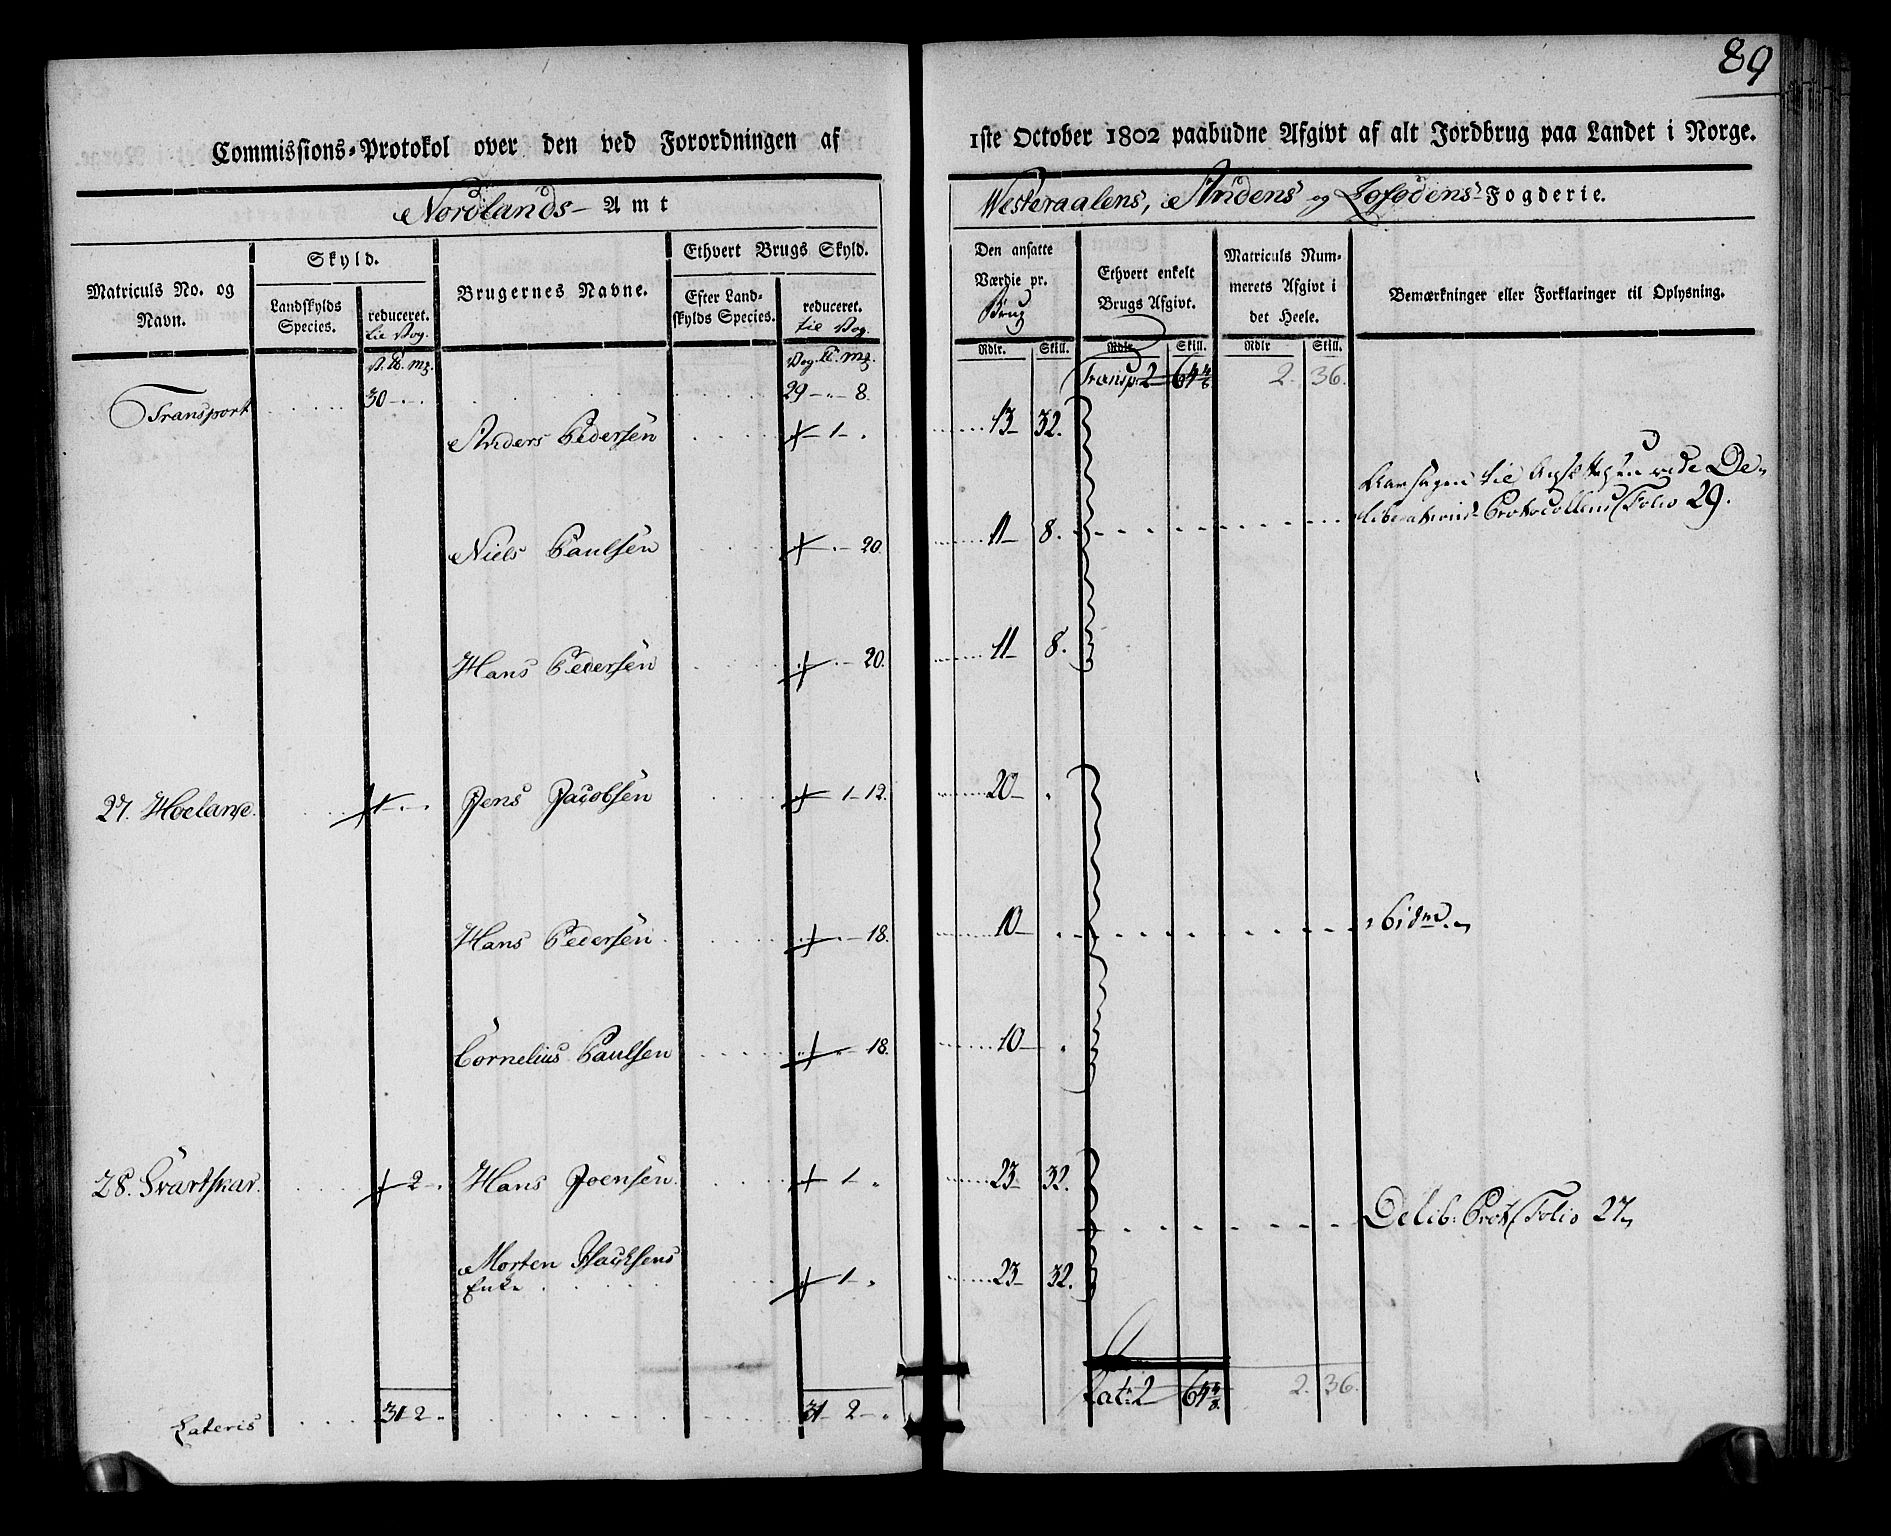 89
Commissions-Protokol over den ved Forordningen af 1ste October 1802 paabudne Afgivt af alt Jordbrug paa Landet i Norge.
Nordlands- Amt Westeraalens, Andens og Lofodens-Fogderie.
Matriculs No. og Navn.
Skyld.
Landskylds Species.
reduceret. til Vog.
Brugernes Navne.
Ethvert Brugs Skyld.
Efter Landskylds Species.
reduceret. til Vog.
Den ansatte Værdie pr. Brug
Rdlr. Skill.
Ethvert enkelt Brugs Afgivt.
Rdlr. Skill.
Matriculs Nummerets Afgivt i det Heele.
Rdlr Skill.
Bemærkninger eller Forklaringer til Oplysning.
V. ℔. mƶ. Vog. ℔. mƶ.
Transport 30 - . . 29 - . - 8. Transp: 2 64 4/8 2. 36.
Anders Pedersen + 1 - . 13 - 32.
Aarsagen til Ansættelsen vide De-
liberations-Protocollens Folio 29.
Niels Paulsen + . - 20. 11 - 8.
Hans Pedersen + . - 20. 11 - 8.
27. Hoelanse. 1 - . - . Jens Jacobsen + 1 - 12. 20 - .
Hans Pedersen. + . - 18. 10 - . ibidm.
Cornelius Paulsen + . - 18. 10 - .
28. Svartskar. + 2 - . Hans Joensen. + 1 . 23 - 32.
Delib: Prot: Folio 27
Morten Isachsens
Enke + 1 . 23 - 32.
Lateris 31 - 2 - . 31 - 2 - . Lat: 2 64 4/8 2. 36.